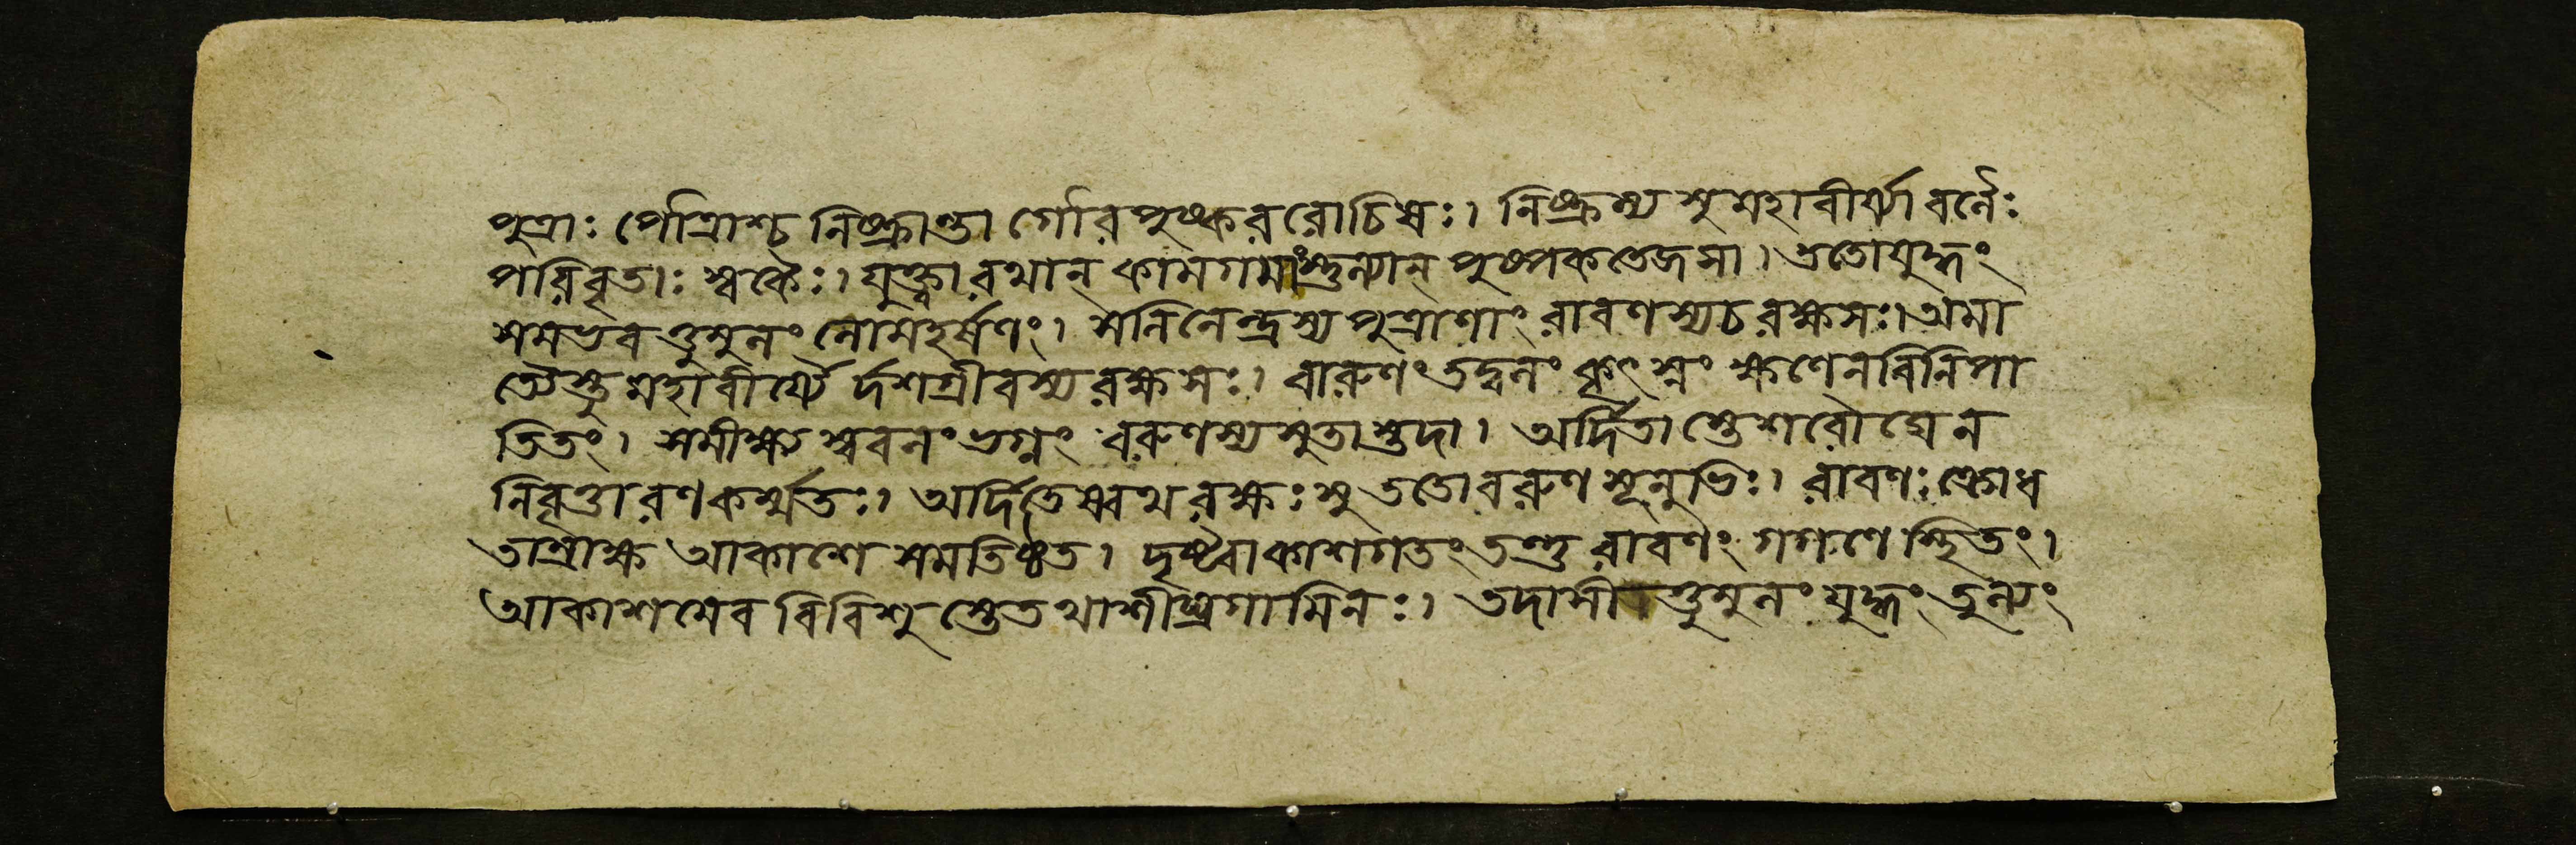 পুত্রাঃ পৌত্রাশ্চ নিষ্ক্রান্তা গৌরপুষ্কররোচিষঃ। নিষ্ক্রম্য সুমহাবীর্য্যা বলৈঃ
পরিবৃতাঃ স্বকৈঃ। যুক্ত্বা রথান্ কামগমাংস্তুল্যান্ পুষ্পকতেজসা। ততোযুদ্ধং
সমভবত্তুমুলং লোমহর্ষণং। সলিলেন্দ্রস্যপুত্রাণাং রাবণস্যচ রক্ষসঃ। অমা
ত্যৈস্তু মহাবীর্য্যৈ র্দশগ্রীবস্য রক্ষসঃ। বারুণং তদ্বলং কৃৎস্নং ক্ষণেনবিনিপা
তিতং। সমীক্ষ্য স্ববলং ভগ্নং বরুণস্যসুতাস্তদা। অর্দিতাস্তেশরৌঘেন
নিবৃত্তা রণকর্ম্মতঃ। অর্দিতেষ্বথ রক্ষঃসু ততোবরুণ সূনুভিঃ। রাবণঃ ক্রোধ
তাম্রাক্ষ আকাশে সমতিষ্ঠত। দৃষ্ট্বাকাশগতং তন্তু রাবণং গগণে স্থিতং।
আকাশমেব বিবিশু স্তেতথাশীঘ্রগামিনঃ। তদাসীত্তুমুলং যুদ্ধং তুল্যং